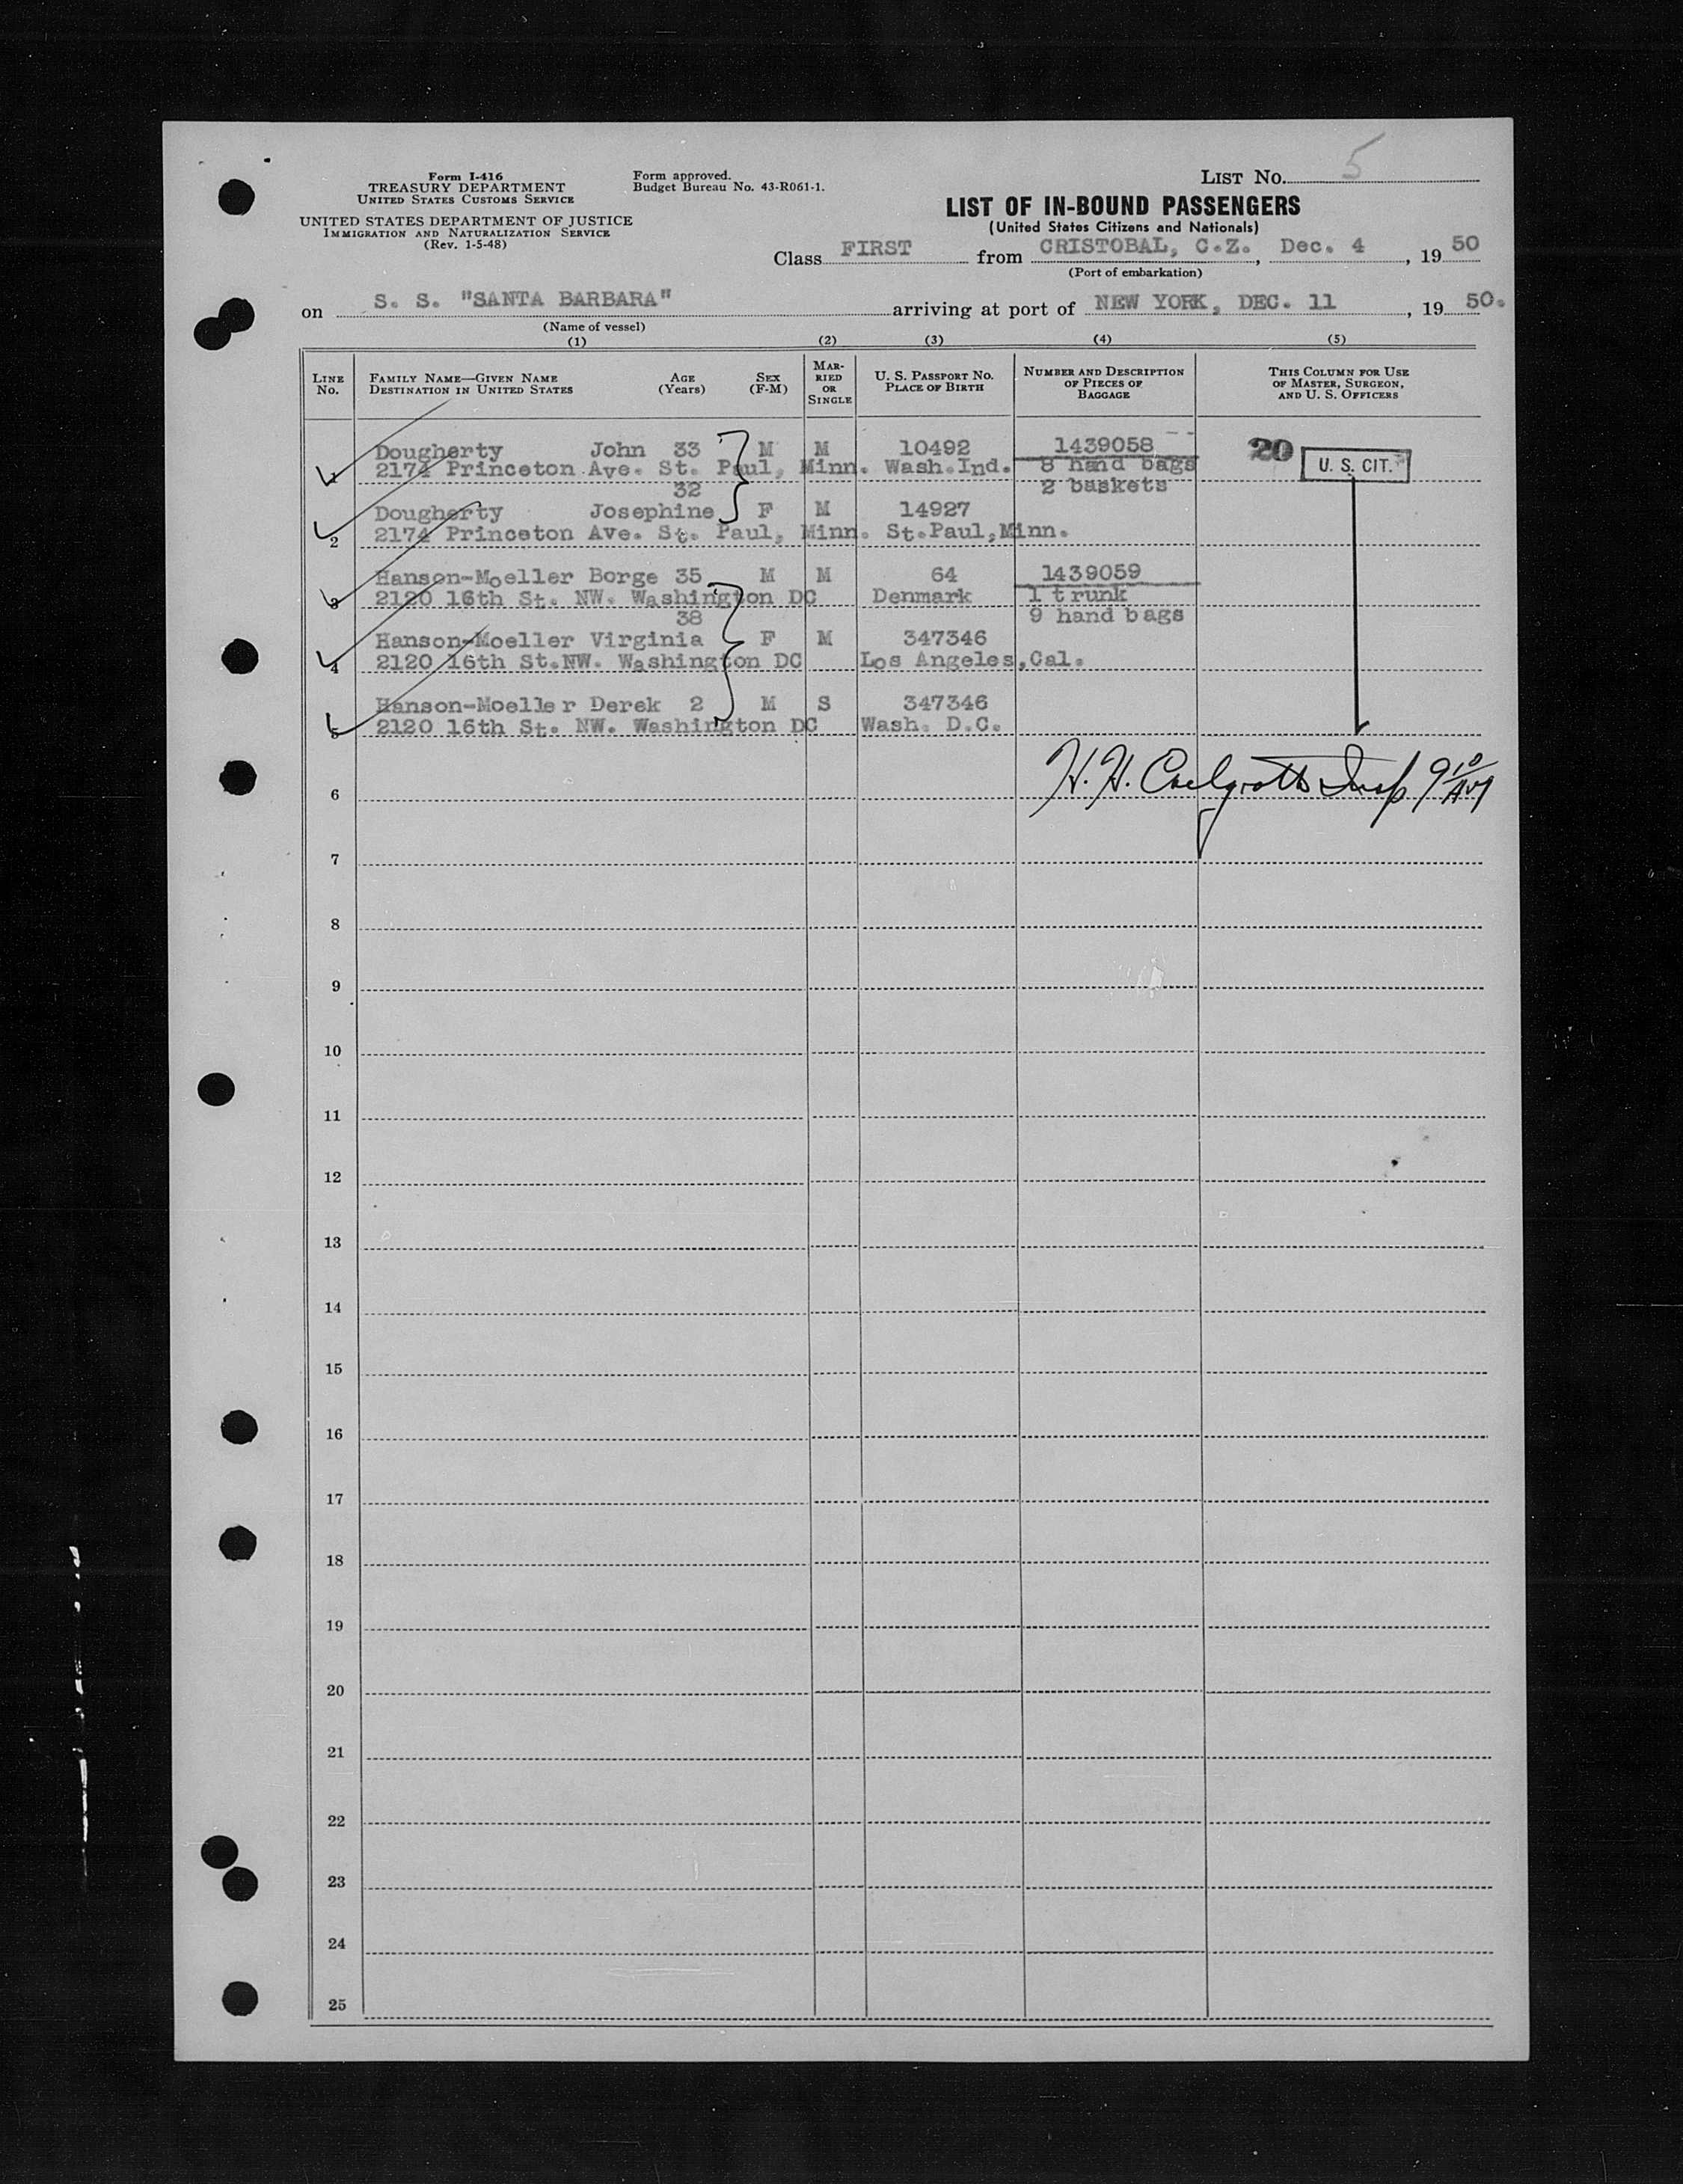 Form I-416
TREASURY DEPARTMENT
UNITED STATES CUSTOMS SERVICE
UNITED STATES DEPARTMENT OF JUSTICE
IMMIGRATION AND NATURALIZATION SERVICE
(Rev. 1-5-48)
Form approved.
Budget Bureau No. 43-R061-1.
LIST NO. 5
LIST OF IN-BOUND PASSENGERS
(United States Citizens and Nationals)
Class FIRST from CRISTOBAL, C.Z., Dec. 4, 19 50
(Port of embarkation)
on S. S. "SANTA BARBARA" arriving at port of NEW YORK, DEC. 11, 19 50.
(Name of vessel)
(1) (2) (3) (4) (5)
LINE NO. FAMILY NAME—GIVEN NAME DESTINATION IN UNITED STATES AGE (Years) SEX (F-M) MARRIED OR SINGLE U. S. PASSPORT NO. PLACE OF BIRTH NUMBER AND DESCRIPTION OF PIECES OF BAGGAGE THIS COLUMN FOR USE OF MASTER, SURGEON, AND U. S. OFFICERS
Dougherty John 33 M M 10492 1439058 20 U. S. CIT.
1 2174 Princeton Ave. St. Paul, Minn. Wash.Ind. 8 hand bags
32 2 baskets
Dougherty Josephine F M 14927
2 2174 Princeton Ave. St. Paul, Minn. St.Paul,Minn.
Hanson-Moeller Borge 35 M M 64 1439059
3 2120 16th St. NW. Washington DC Denmark 1 trunk
38 9 hand bags
Hanson-Moeller Virginia F M 347346
4 2120 16th St.NW. Washington DC Los Angeles,Cal.
Hanson-Moeller Derek 2 M S 347346
5 2120 16th St. NW. Washington DC Wash. D.C.
6 H. H. Insp. 9 10 AM
7
8
9
10
11
12
13
14
15
16
17
18
19
20
21
22
23
24
25